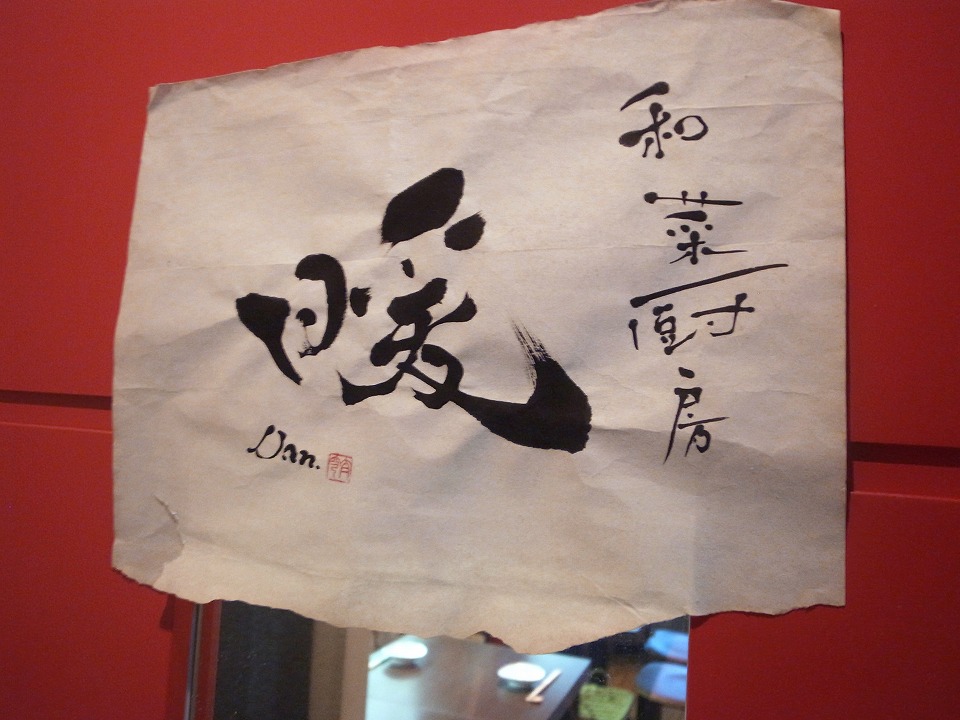 和菜厨房
暖
Dan.